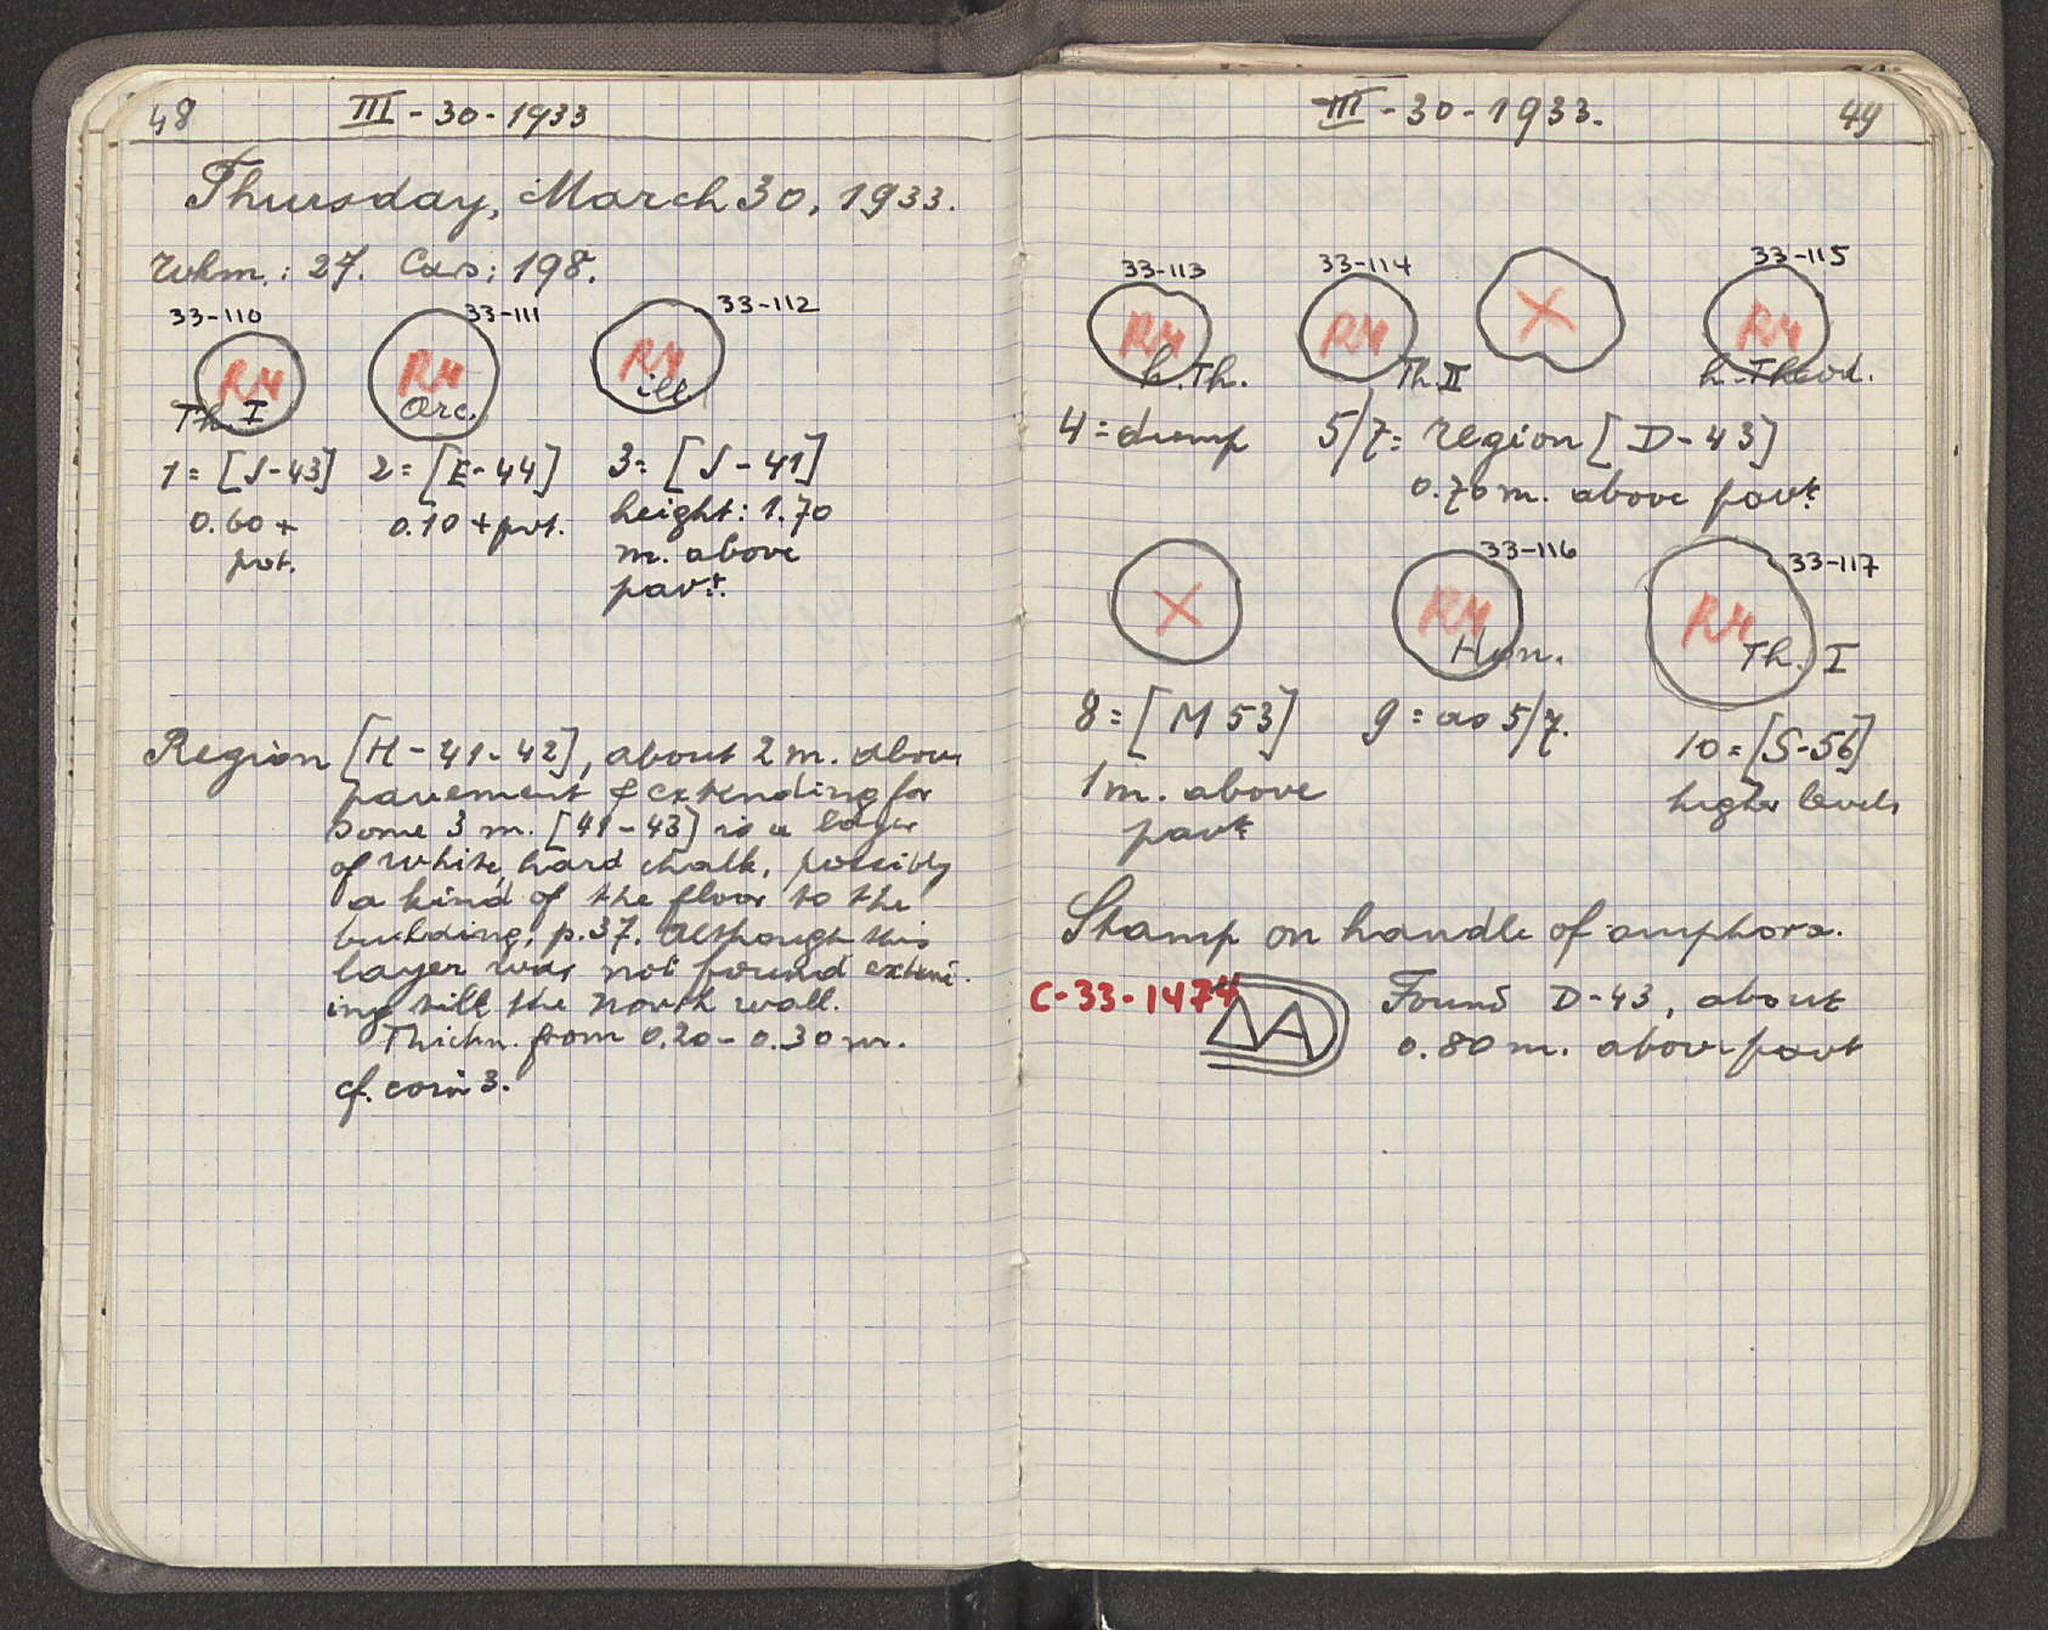 48 III - 30 - 1933
Thursday, March 30, 1933.
Wkm.: 27. Cars: 198.
33-110 33-111 33-112
R4 R4 R4
Th. I Arc. ill.
1 = [J-43] 2 = [E-44] 3 = [J-41]
0.60 + 0.10 + pvt. height: 1.70
pvt. m. above
pavt.
Region [H-41-42], about 2 m. above
pavement & extending for
some 3 m. [41-43] is a layer
of white, hard chalk, possibly
a kind of the floor to the
building, p. 37. Although this
layer was not found extend-
ing till the north wall.
Thickn. from 0.20 - 0.30 m.
cf. coin 3.
III - 30 - 1933. 49
33-113 33-114 33-115
R4 R4 X R4
h. Th. Th. II h. Theod.
4 = dump 5/7 = region [D-43]
0.70 m. above pavt.
33-116 33-117
X R4 R4
Hon. Th. I
8 = [M 53] 9 = as 5/7. 10 = [S-56]
1 m. above higher levels
pavt.
Stamp on handle of amphora.
C-33-1474 ΔA Found D-43, about
0.80 m. above pavt